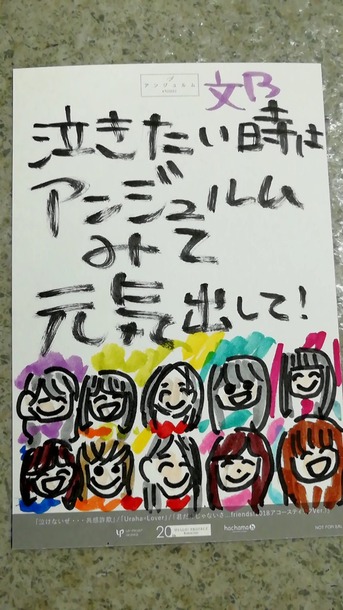 アンジュルム
泣きたい時は
アンジュルム
みて
元気出して!
「泣けないぜ・・・共感詐欺」/「Uraha=Lover」/「君だけじゃないさ...friends(2018アコースティックVer.)」
UP-FRONT WORKS
20th
HELLO! PROJECT
hachama
NOT FOR SALE